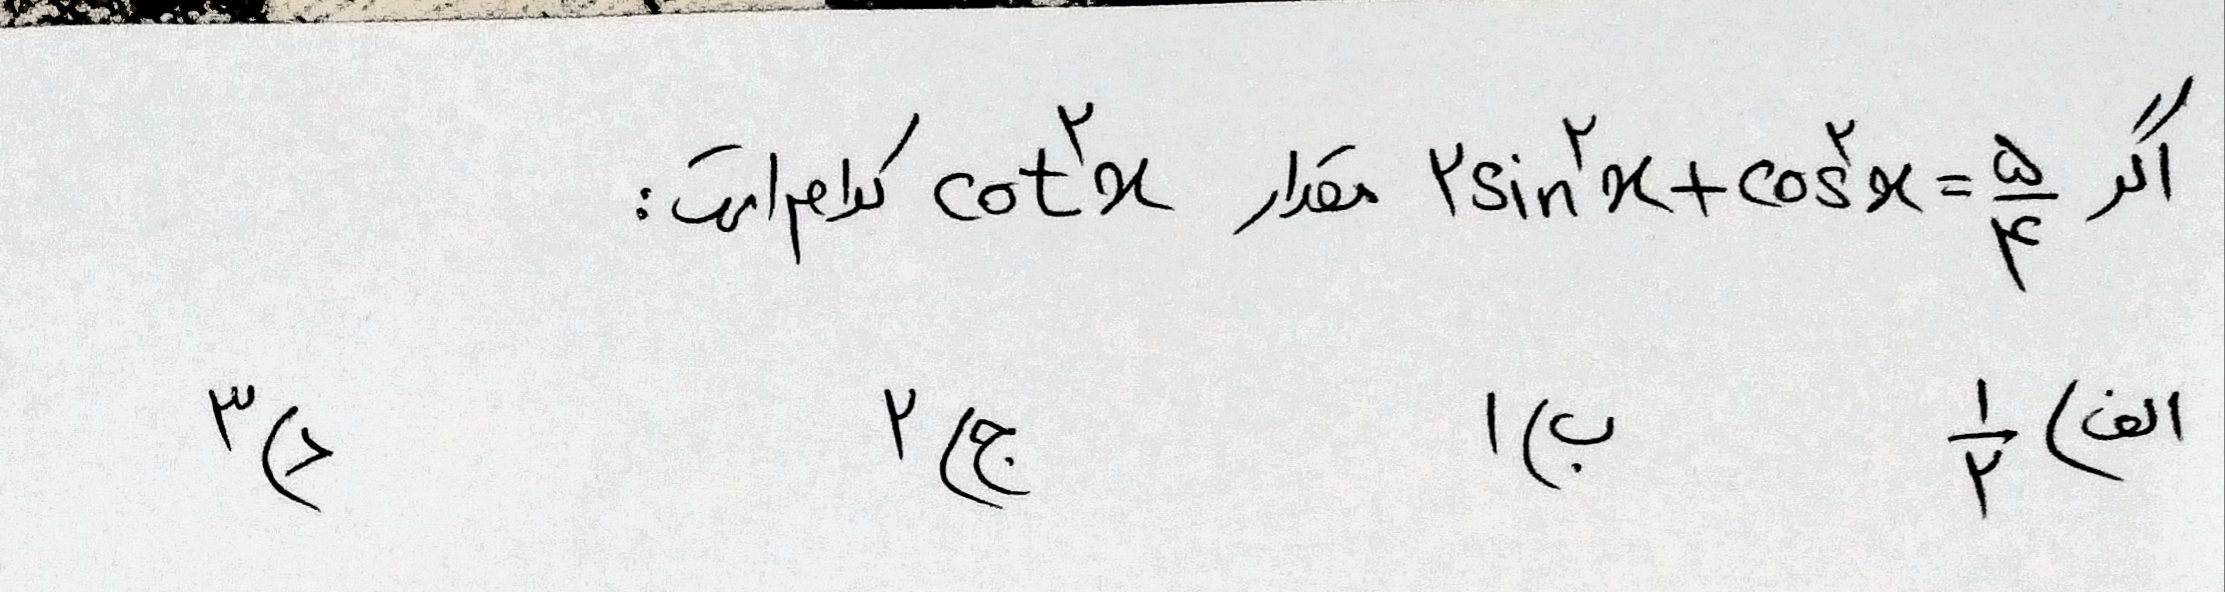 اگر ۲sin²x + cos²x = ۵/۴ مقدار cot²x کدام است:
الف) ۱/۲ ب) ۱ ج) ۲ د) ۳